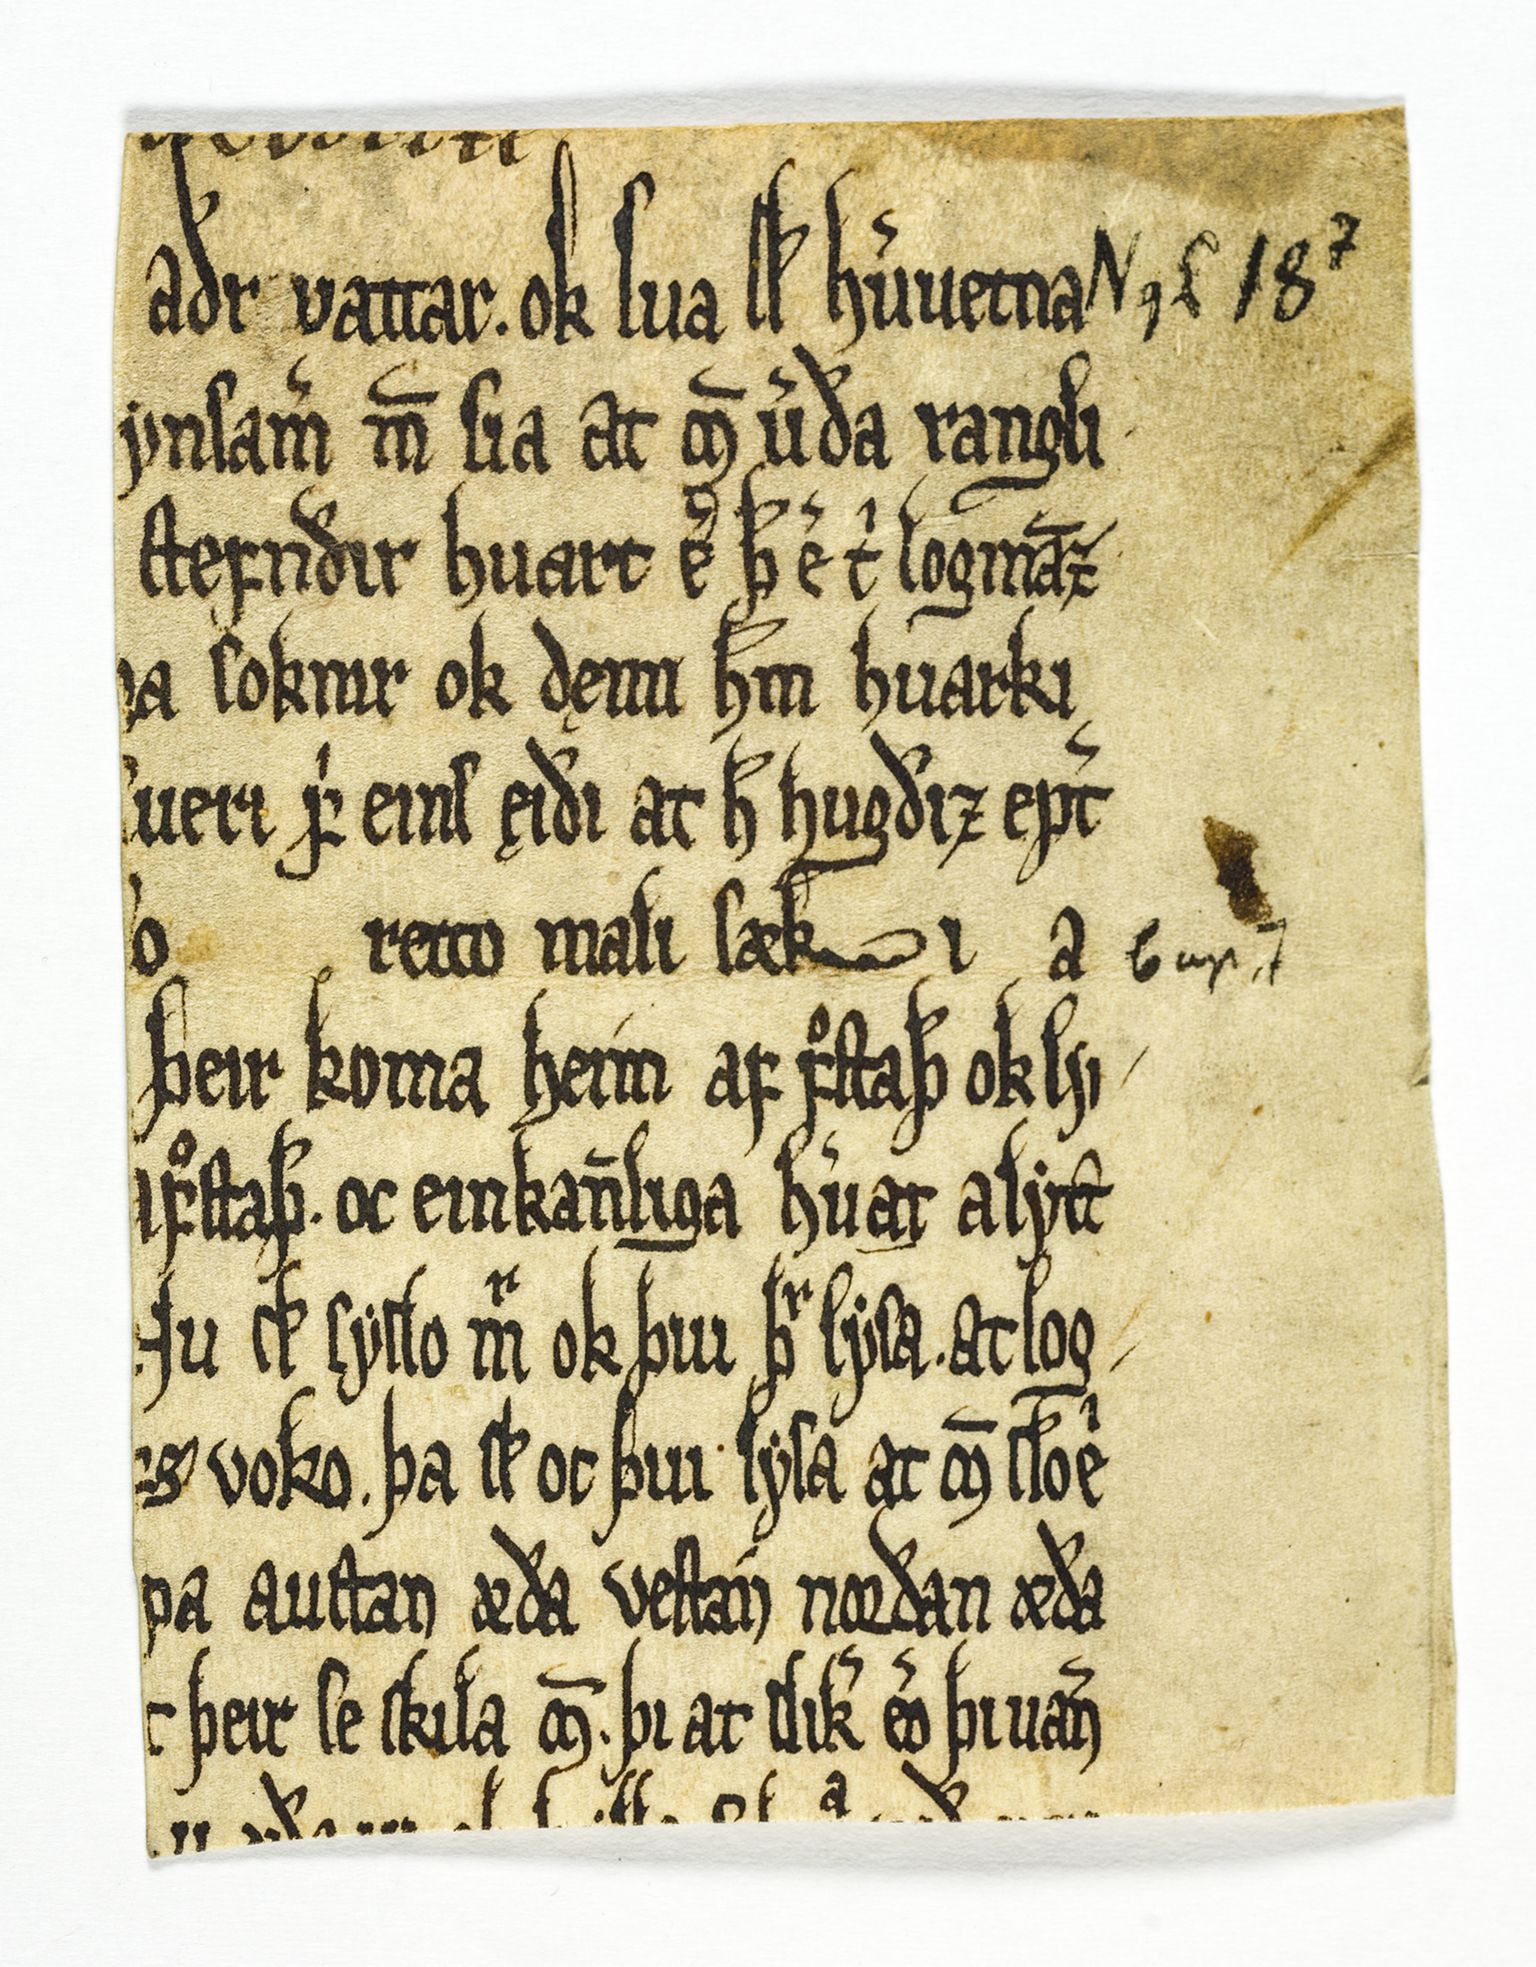 aðr vattar. ok sua sk̄ hu͛uetna NgL 18⁷
ynsam̄ m̄ sia at m̄ u͛ða rangli
stefndir huart e͛ þ̄ e͛ tͥ logmāz
a soknir ok dęmi h̄m huarki
sueri fͥ eins ęiði at h̄ hugðiz ept͛
o retto mali sæk i a
þeir koma heim af fͦstaþ ok lyͥ
ifͦstaþ. oc einkan̄liga hu͛ar alẏtt
u sk̄ sẏslo mͬ ok þui þͬ lẏsa. at log
voko. þa sk̄ oc þui lẏsa at m̄ skoͥe
pa austan æða vestan norðan æða
t þeir se skila m̄. þi at slik͛ e͛o þi uan͛